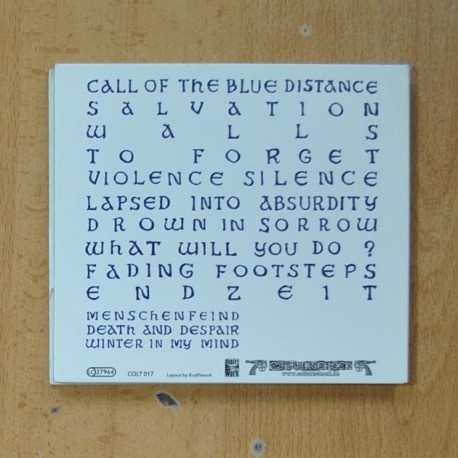 CALL OF THE BLUE DISTANCE
SALVATION
WALLS
TO FORGET
VIOLENCE SILENCE
LAPSED INTO ABSURDITY
DROWN IN SORROW
WHAT WILL YOU DO ?
FADING FOOTSTEPS
ENDZEIT
MENSCHENFEIND
DEATH AND DESPAIR
WINTER IN MY MIND
LC 27964
COLT 017
Layout by Kraftwork